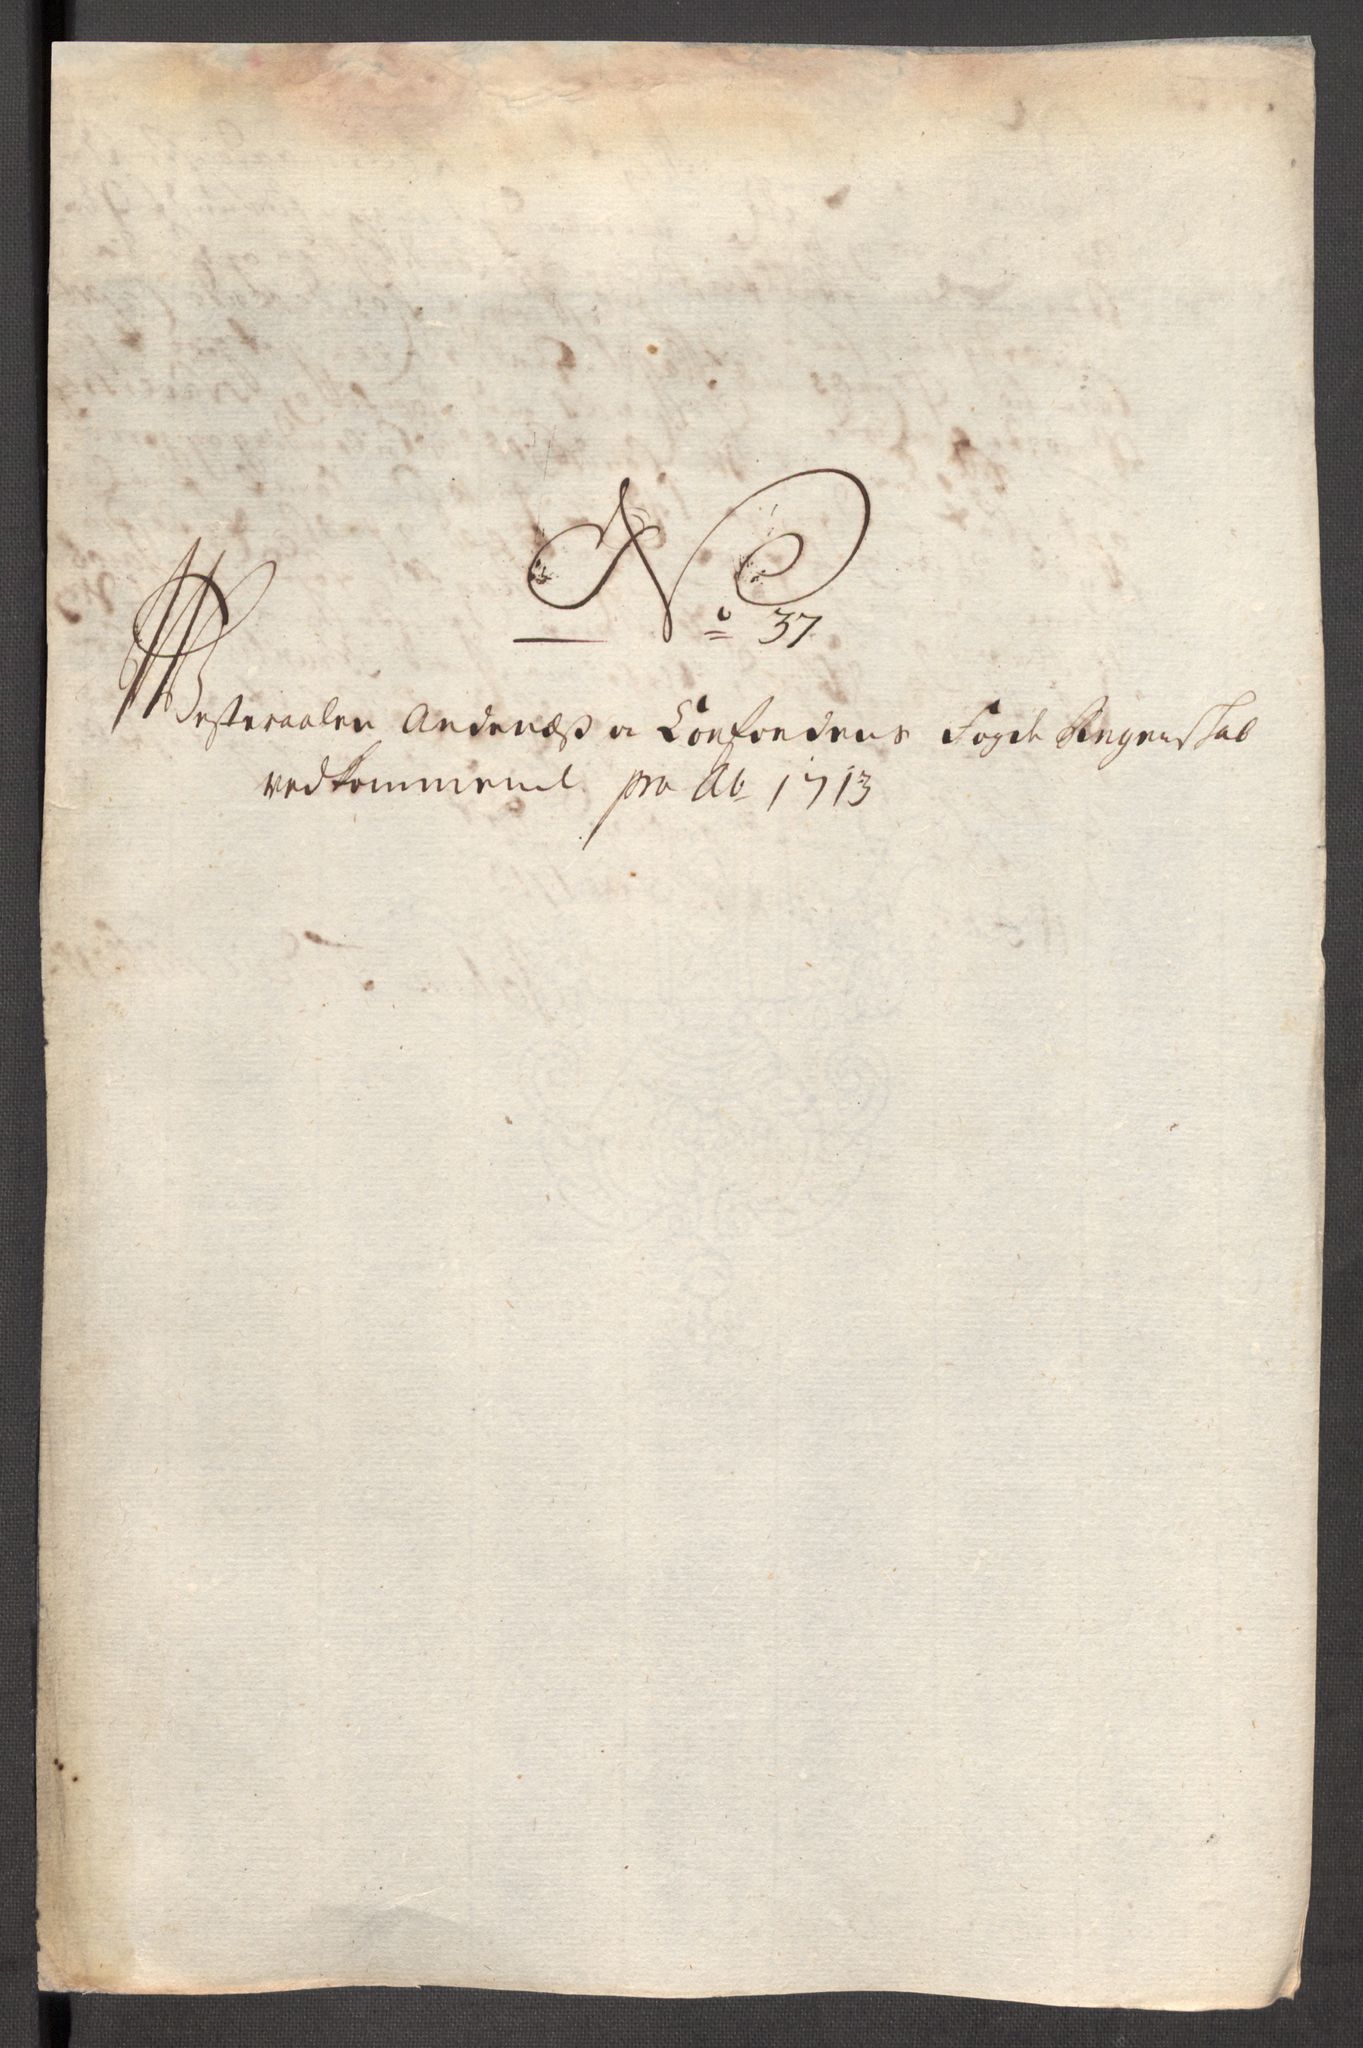 No 37
Westeraalen Andenæß oc Loefoedens Fogde Regenskab
vedkommend pro Ao 1713